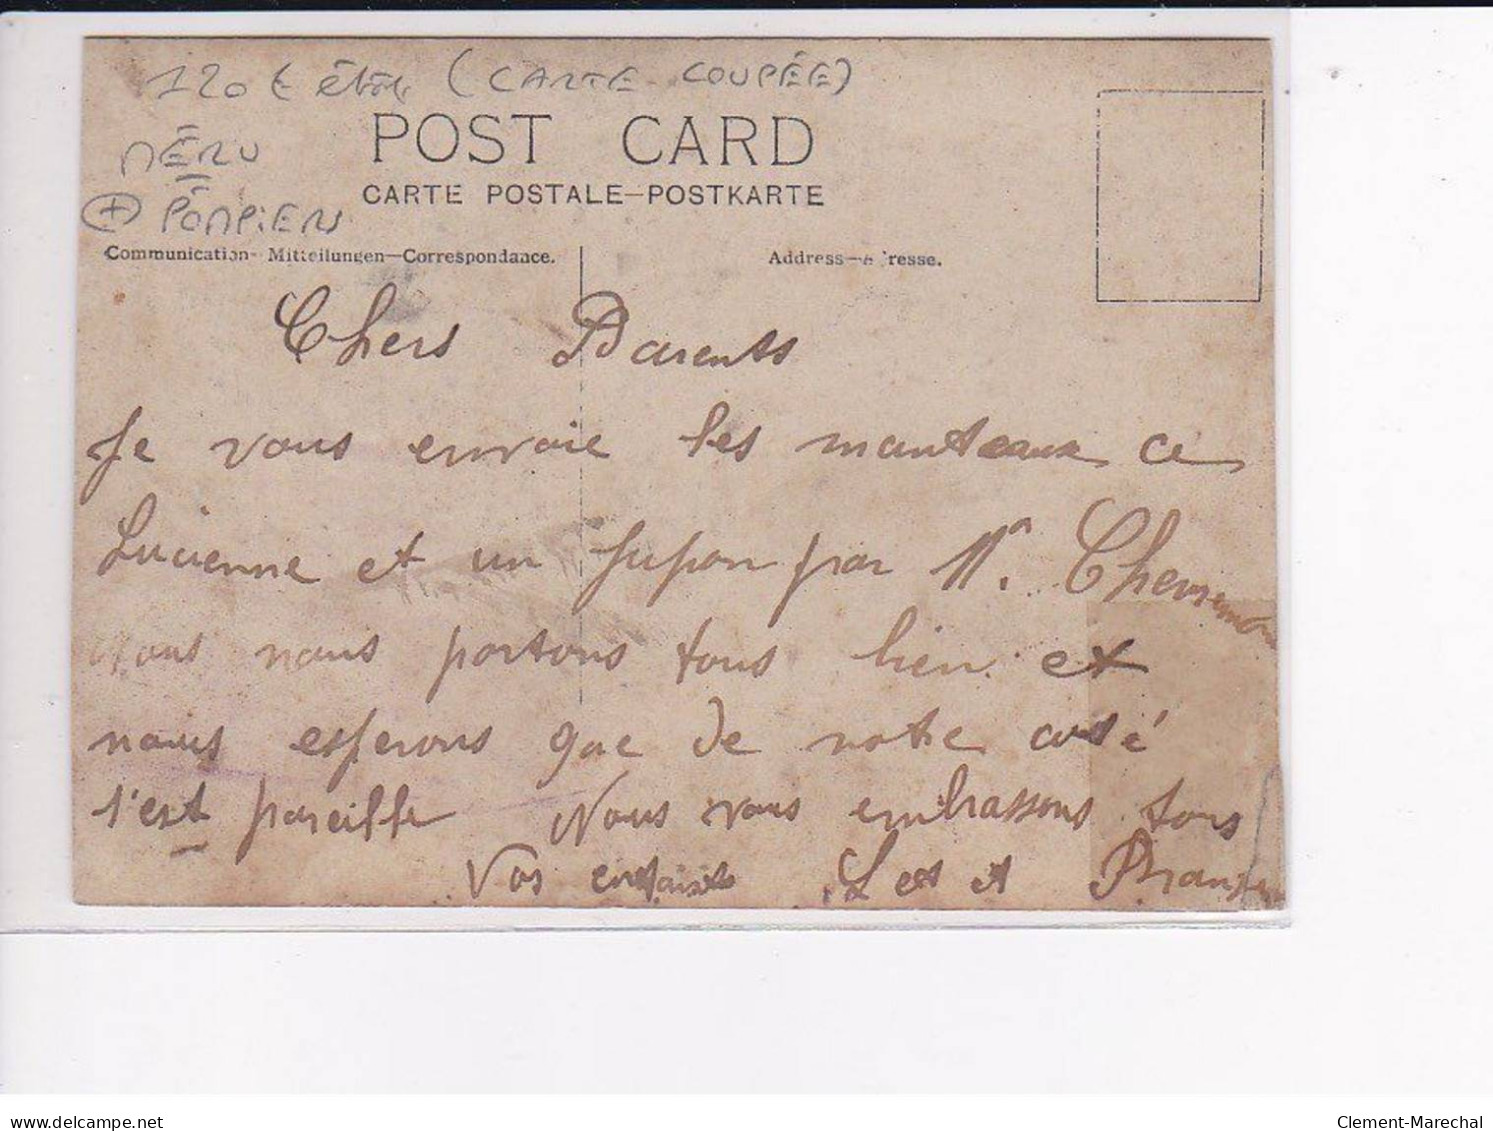 120 € état (CARTE COUPÉE)
MÉRU
POST CARD
(+) POMPIERS
CARTE POSTALE—POSTKARTE
Communication- Mitteilungen—Correspondance.
Address—A resse.
Chers Parents
Je vous envoie les manteaux a
Lucienne et un jupon par Mr.
nous nous portons tous bien et
nous esperons que de notre coté
s'est pareille Nous vous embrassons tous
Vos enfants L et
delcampe.net
Clement-Marechal